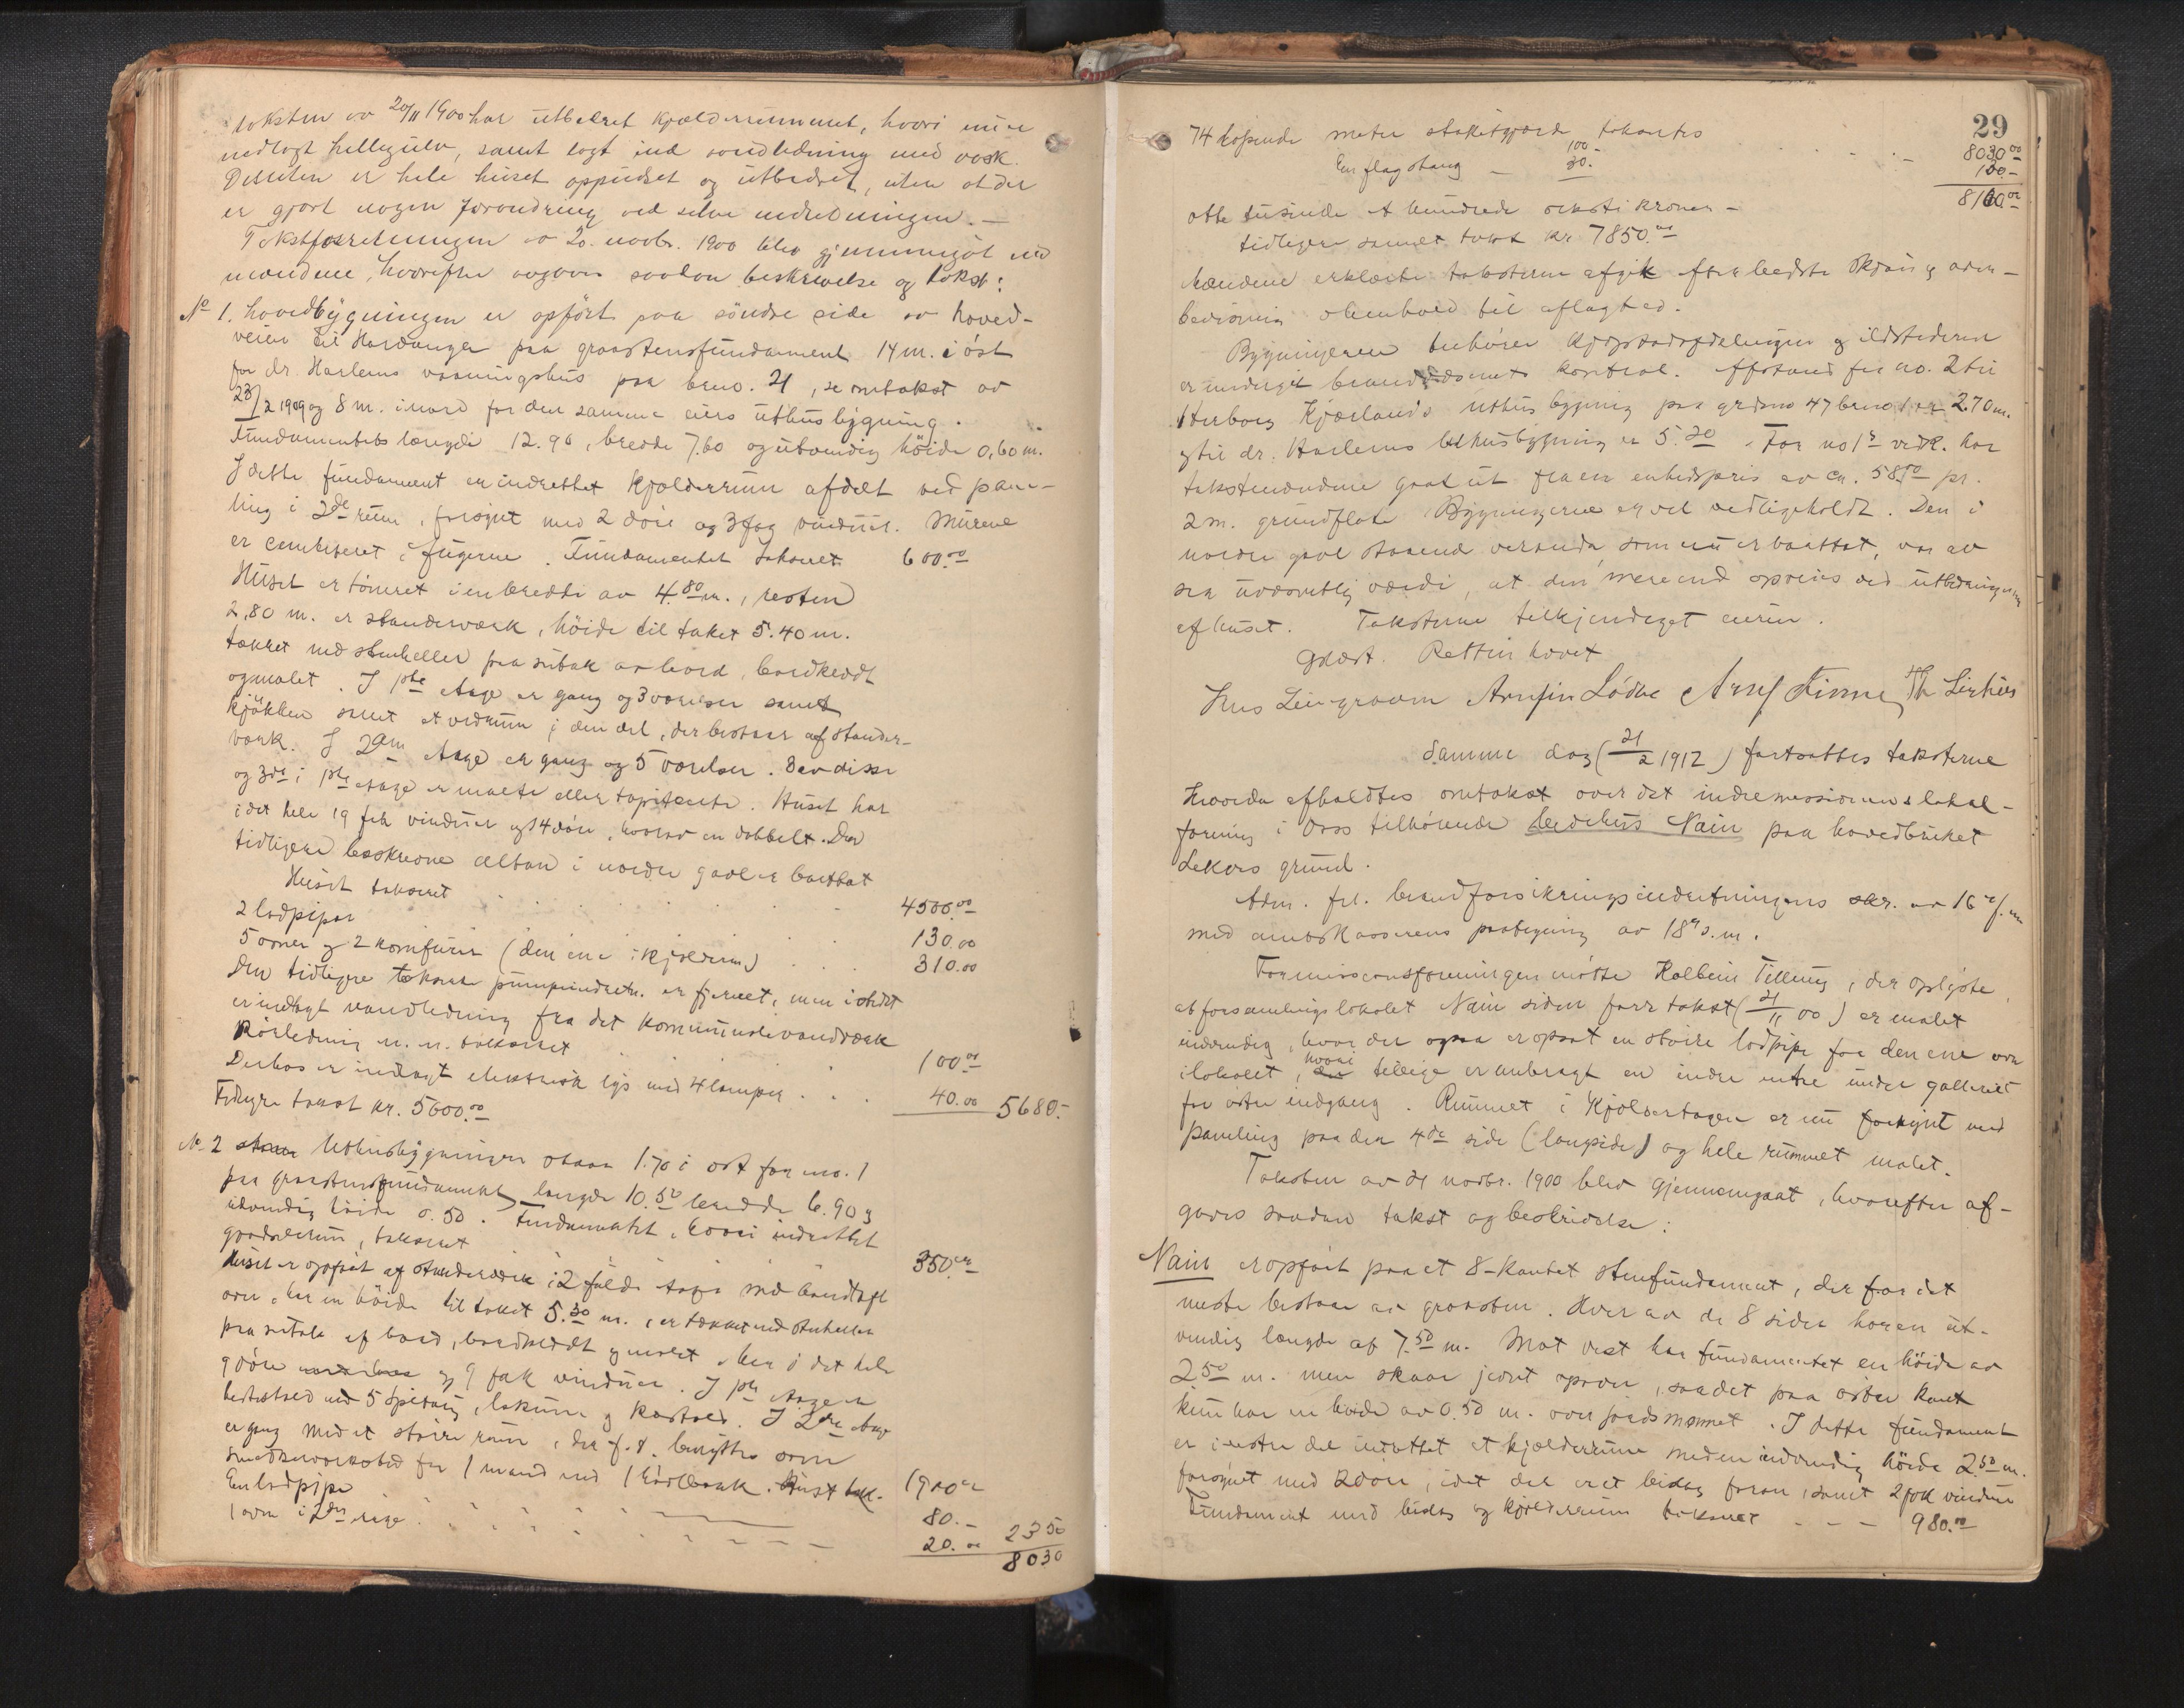 taksten av 20/11 1900 har utbedret kjælderrummet, hvori nu er
nedlagt hellegulv, samt lagt ind vandledning med vask.
Desuten er hele huset oppudset og utbedret, uten at der
er gjort nogen forandring ved selve indredningen. —
Takstforretningen av 20. novbr. 1900 blev gjennemgåt med
mændene, hvorefter avgaves saadan beskrivelse og takst:
No 1. Hovedbygningen er opført paa søndre side av hoved-
veien til Hardanger paa graastensfundament 14 m. i øst
for dr. Harlems vaaningshus paa brno. 21, se omtakst av
23/2 1909 og 8 m. i nord for den samme eiers uthusbygning.
Fundamentets længde 12.96, bredde 7.60 og utvendig höide 0,60 m.
I dette fundament er indrettet kjælderrum afdelt ved pane-
ling i 2de rum, forsynt med 2 döre og 3 fag vinduer. Murene
er cementeret i fugerne. Fundamentet takseret 600.00
Huset er tömret i en bredde av 4.80 m., resten
2,80 m. er standerværk, höide til taket 5.40 m.
tækket med stenheller paa sutak av bord, bordklædt
og malet. I 1ste etage er gang og 3 værelser samt
kjökken samt et vedrum i den del, der bestaar af stander-
værk. I 2den etage er gang og 5 værelser. 3 av disse
og 3de i 1ste etage er malte eller tapeterte. Huset har
i det hele 19 fak vinduer og 14 döre, hvorav en dobbelt. Den
tidligere beskrevne altan i nordre gavl er borttat
Huset takseret 4500.00
2 lodpiper 130.00
5 ovner og 2 komfurer (den ene i kjælderen) 310.00
Den tidligere takserte pumpeindretn. er fjernet, men i stedet
er indlagt vandledning fra det kommunale vandværk
Rörledning m. m. takseret 100.00
Desuten er indlagt elektrisk lys med 4 lamper 40.00 5680.-
Tidligere takst kr. 5600.00
No 2 Uthusbygningen staar 1.70 i öst for no. 1
paa graastensfundament, længde 10.50 bredde 6.90 og
utvendig höide 0.50. Fundamentet, hvori indrettet
grødselrum, takseret 350.00
Huset er opført af standerværk i 2 fulde etager med brandtagl
over, har en höide til taket 5.30 m., er tækket med stenheller
paa sutak af bord, bordklædt og malet. Har i det hele
9 döre og 9 fak vinduer. I 1ste etage er
hestestald med 5 spiltaug, lokum og kostald. I 2den etage
er gang med et större rum, der f. t. benyttes som
snedkerverksted for 1 mand med 1 hövlbænk. Huset tax. 1900.00
En lodpipe 80.-
1 ovn i 2den etage 20.00 2350
8030
29
74 løpende meter stakitgjærde taksertes 100.- 8030.00
En flagstang — 30.- 130.-
8160.00
otte tusinde et hundrede seksti kroner —
tidligere samlet takst kr 7850.00
Mændene erklærte taksterne afgit efter bedste skjön og over-
bevisning i henhold til aflagt ed.
Bygningerne tilhører kjøpstadafdelingen og ildstederne
er undergit brandvæsenets kontrol. Afstand fra no. 2 til
Herborg Kjærlands uthusbygning paa grdsno 47 brno 1 er 2.70 m.
og til dr. Harlems uthusbygning er 5.20. For no 1s vedk. har
takstmændene gaat ut fra en enhedspris av ca. 58.50 pr.
2 m. grundflate. Bygningerne er vel vedligeholdt. Den i
nordre gavl staaende veranda, som nu er borttat, var av
saa uvæsentlig værdi, at den mere end opveies ved utbedringerne
af huset. Taksterne tilkjendeget eieren.
Oplæst. Retten hævet
Arnfin Lödve Arnf Finne Th Lirhus
Samme dag (21/2 1912) fortsattes taksterne
Hvorda afholdtes omtakst over det indremissionens lokal-
forening i Voss tilhørende bedehus Nain paa hovedbruket
Lekves grund.
Adm. frl. brandforsikringsindretningens skr. av 16de f. m
med amtskasserens paategning av 18de s. m.
For missionsforeningen møtte Kolbein Tillung, der oplyste
at forsamlingslokalet Nain siden forr takst (21/11 00) er malet
indvendig, hvor der ogsaa er opsat en större lodpipe for den ene ovn
i lokalet, hvori tillige er anbragt en indre entre under galleriet
for østre indgang. Rummet i kjælderetagen er nu forsynt med
paneling paa den 4de side (langside) og hele rummet malet.
Taksten av 21 novbr. 1900 blev gjennemgaat, hvorefter af-
gaves saadan takst og beskrivelse:
Nain er opført paa et 8-kantet stenfundament, der for det
meste bestaar av graasten. Hver av de 8 sider har en ut-
vendig længde af 7.50 m. Mot vest har fundamentet en höide av
2.50 m. men skraar jevnt opover, saa det paa østre kant
kun har en höide av 0.50 m. over jordsmonnet. I dette fundament
er i vestre del indrettet et kjælderrum med en indvendig höide 2.50 m.
forsynet med 2 döre, idet det er et bislag foran, samt 2 fak vinduer
Fundament med bislag og kjælderrum takseret 980.00